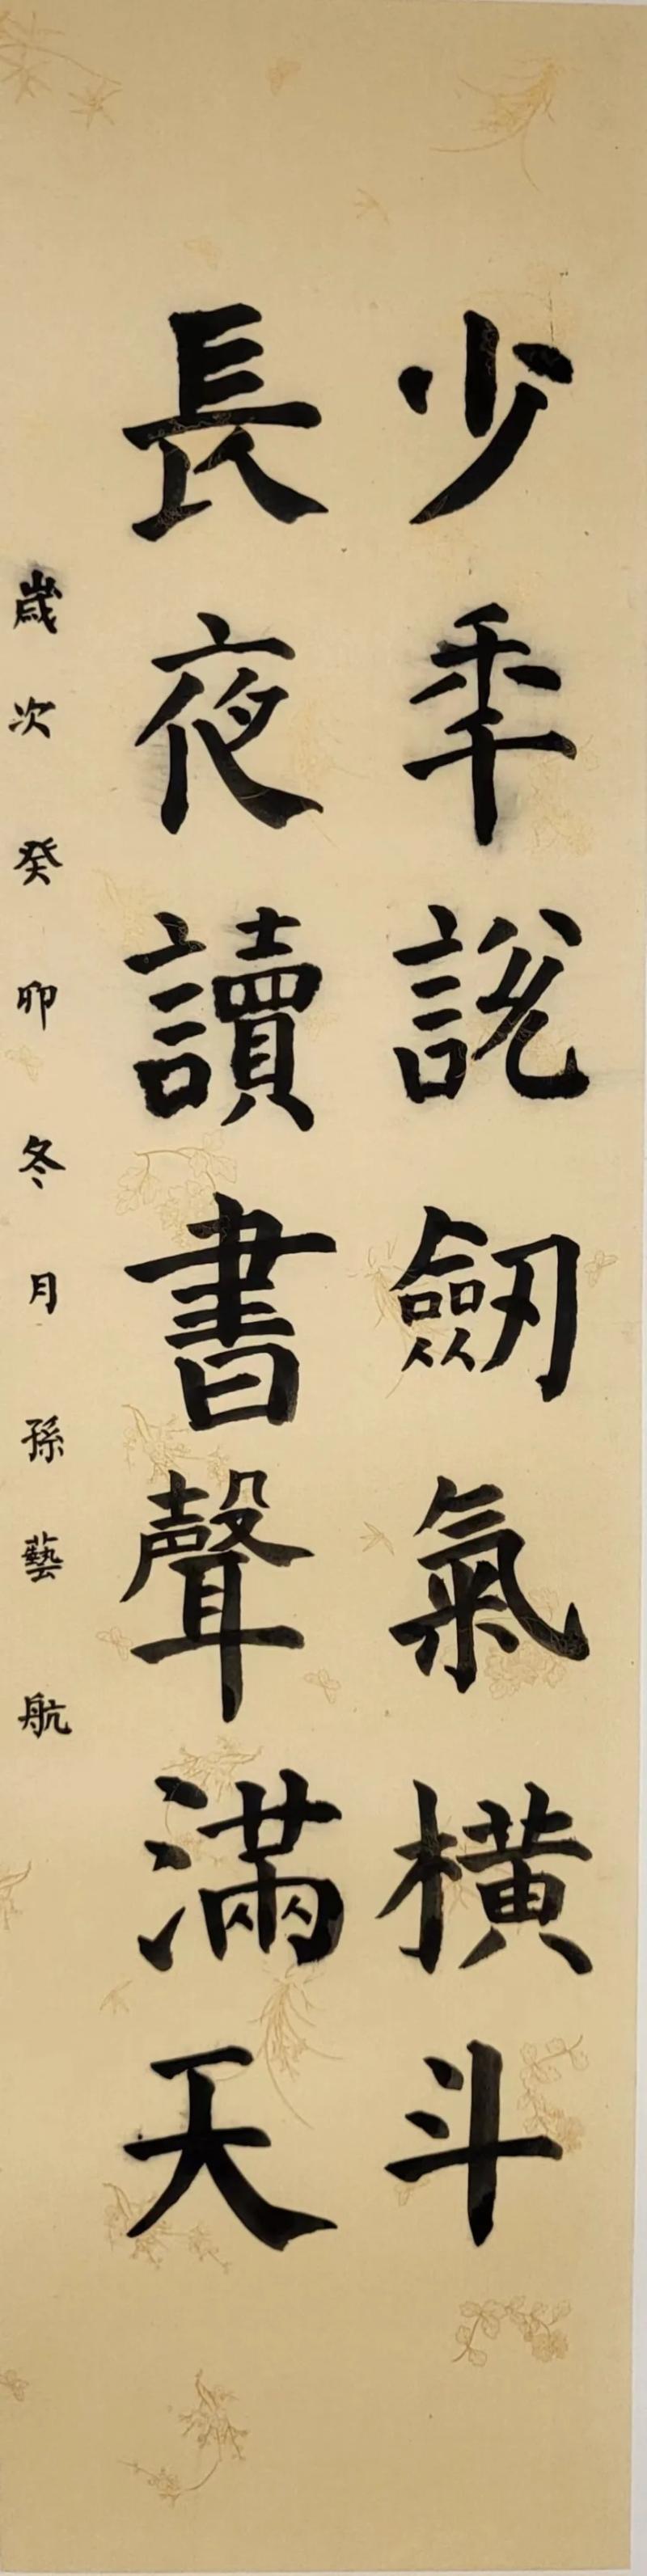 少年說劒氣橫斗
長夜讀書聲滿天
歲次癸卯冬月孫藝航